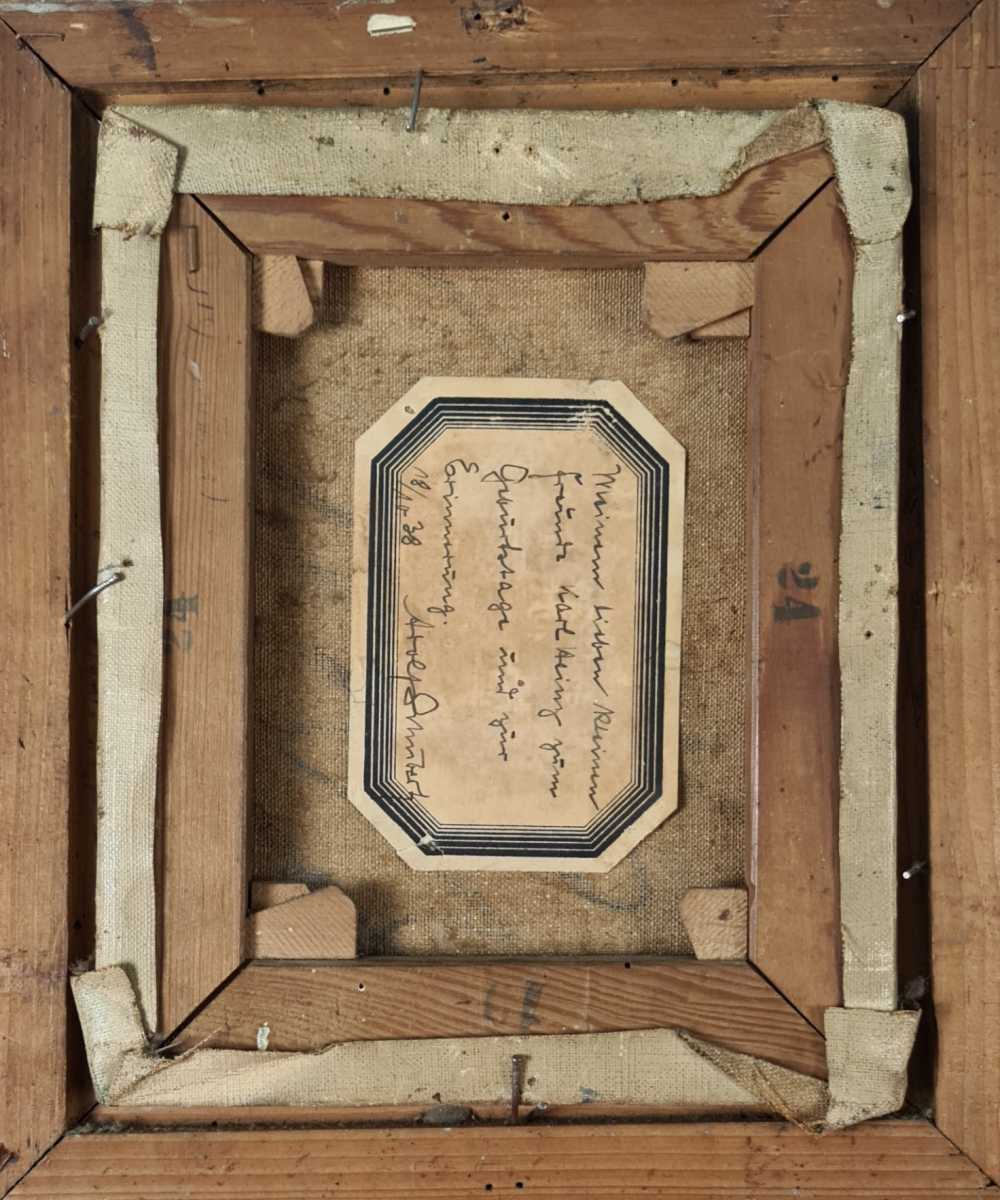 Meinem lieben kleinen
Freunde Karl Heinz zum
Geburtstage und zur
Erinnerung.
18/11 38 Adolf
24
24